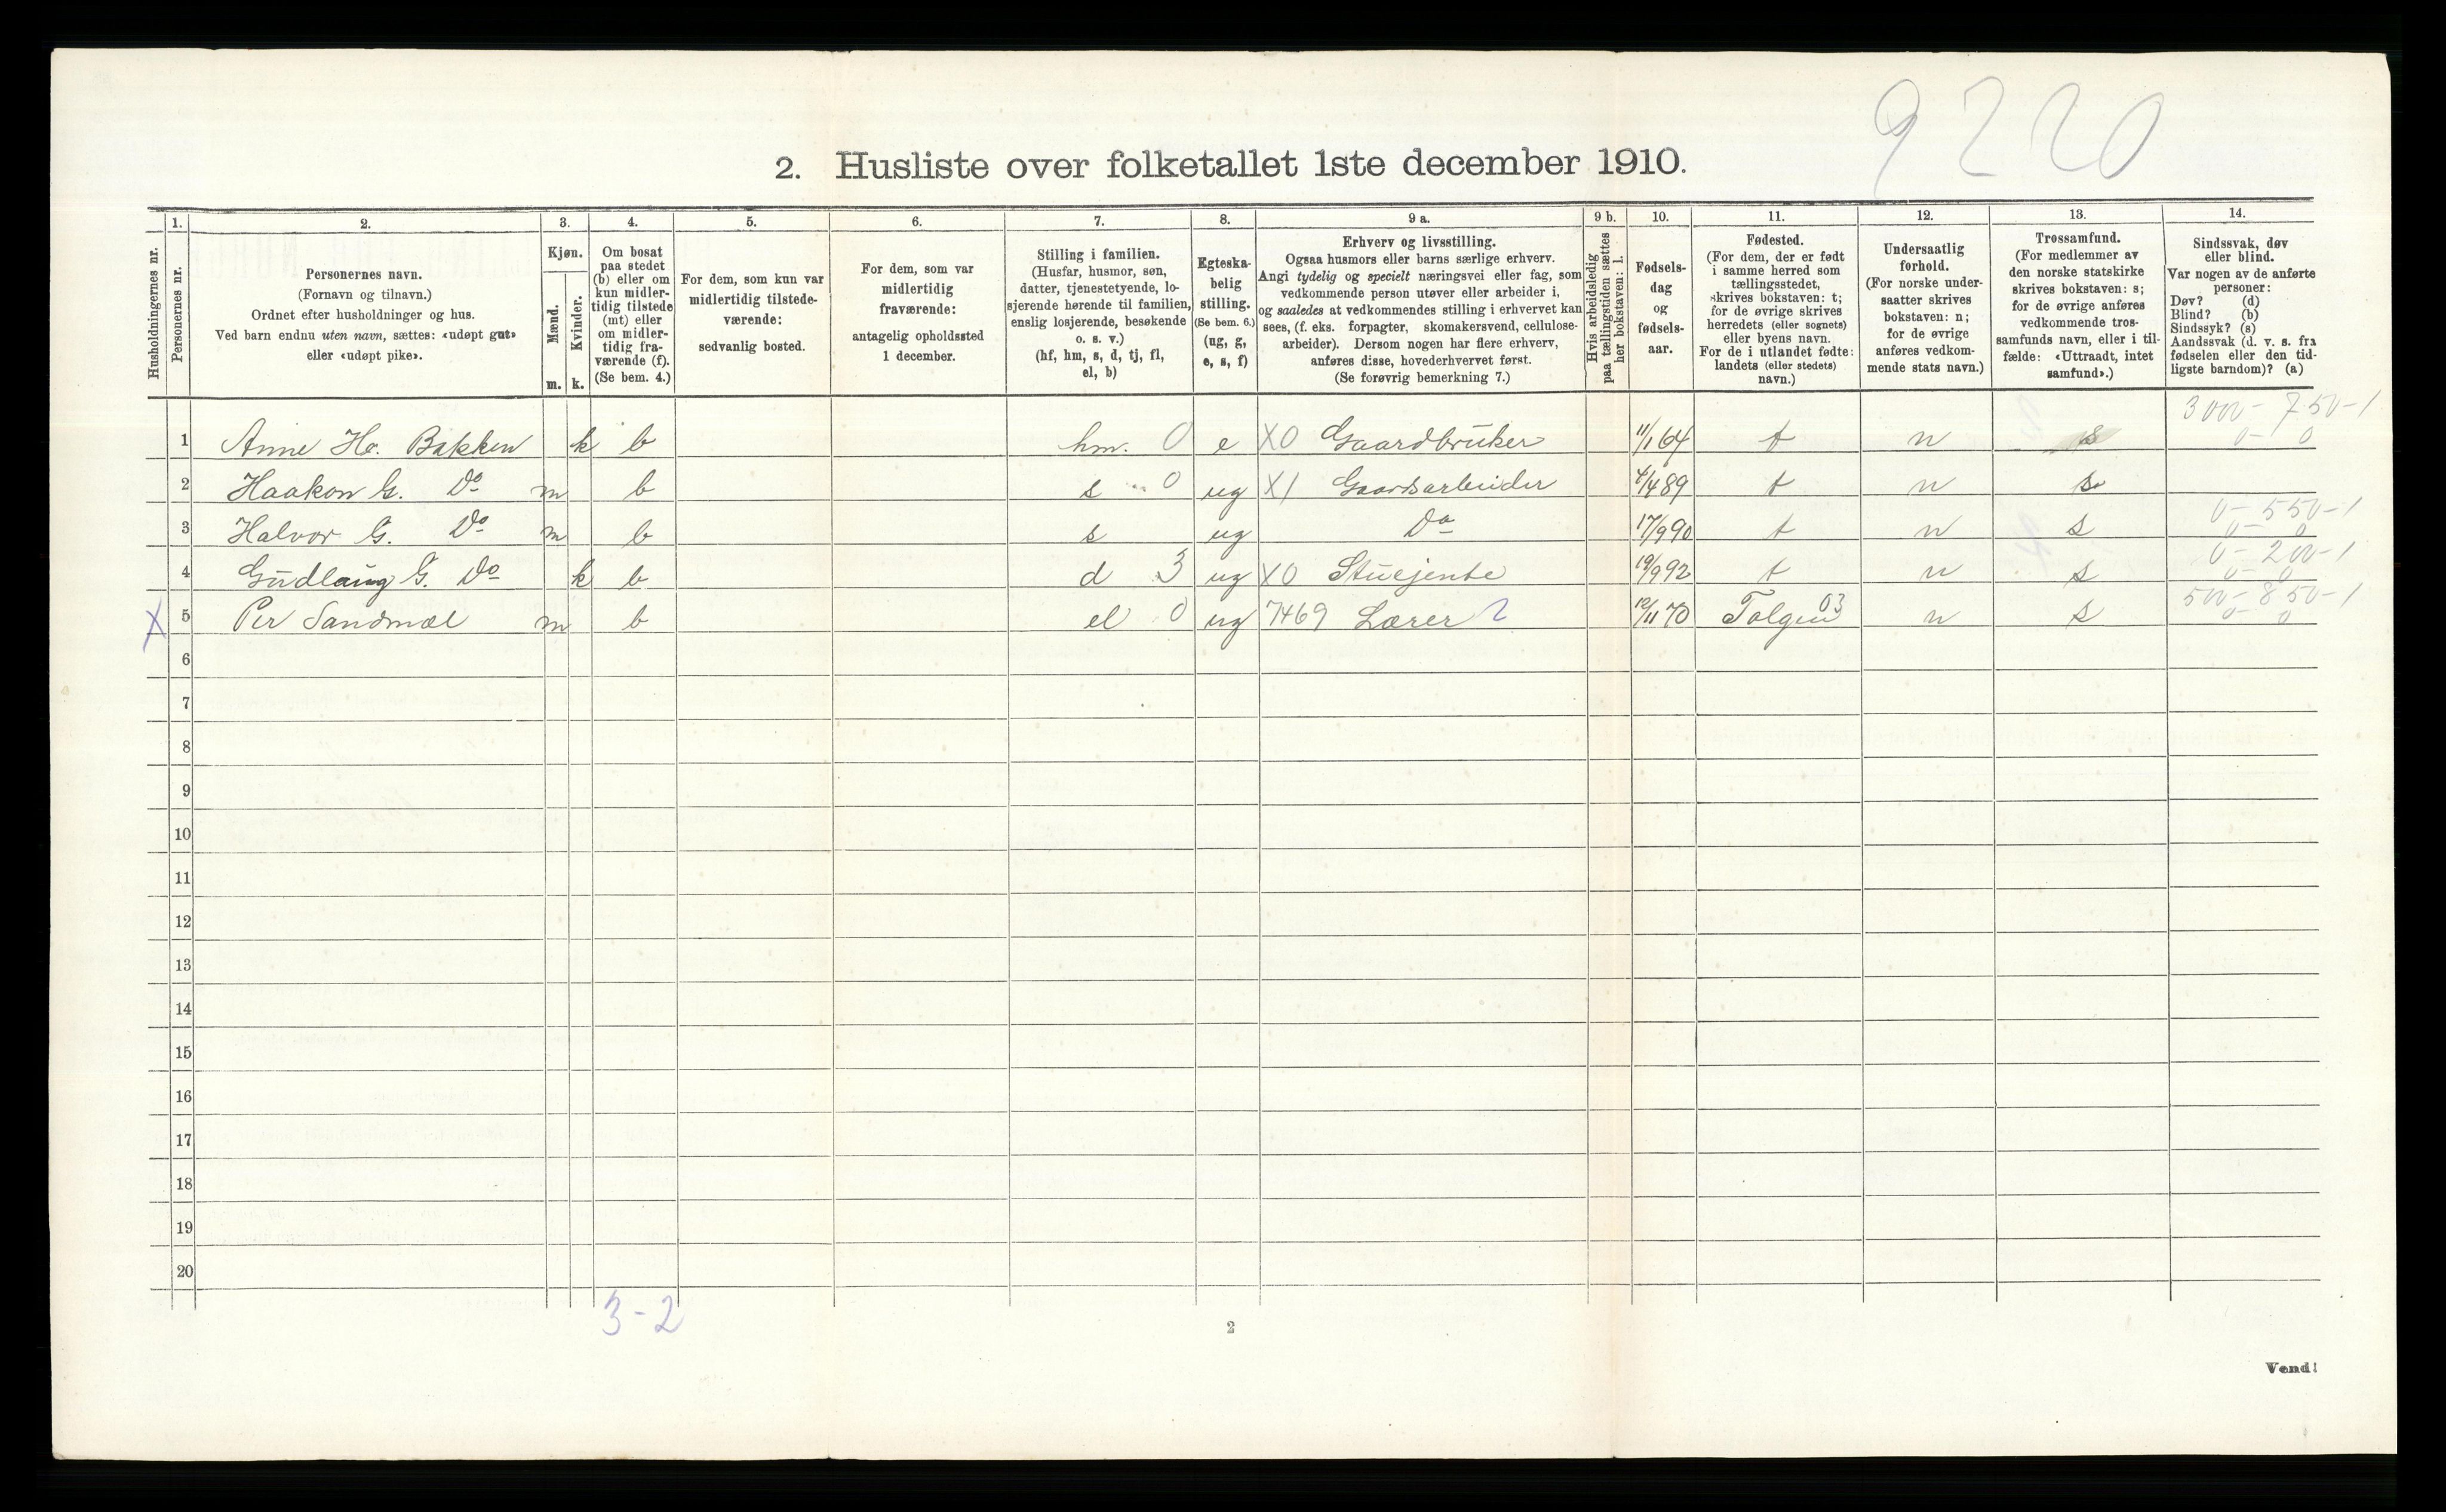 9220
2. Husliste over folketallet 1ste december 1910.
Husholdningernes nr.
1. Personernes nr.
2. Personernes navn.
(Fornavn og tilnavn.)
Ordnet efter husholdninger og hus.
Ved barn endnu uten navn, sættes: «udøpt gut»
eller «udøpt pike».
3. Kjøn.
Mænd. m.
Kvinder. k.
4. Om bosat
paa stedet
(b) eller om
kun midler-
tidig tilstede
(mt) eller
om midler-
tidig fra-
værende (f).
(Se bem. 4.)
5. For dem, som kun var
midlertidig tilstede-
værende:
sedvanlig bosted.
6. For dem, som var
midlertidig
fraværende:
antagelig opholdssted
1 december.
7. Stilling i familien.
(Husfar, husmor, søn,
datter, tjenestetyende, lo-
sjerende hørende til familien,
enslig losjerende, besøkende
o. s. v.)
(hf, hm, s, d, tj, fl,
el, b)
8. Egteska-
belig
stilling.
(Se bem. 6.)
(ug, g,
e, s, f)
9 a. Erhverv og livsstilling.
Ogsaa husmors eller barns særlige erhverv.
Angi tydelig og specielt næringsvei eller fag, som
vedkommende person utøver eller arbeider i,
og saaledes at vedkommendes stilling i erhvervet kan
sees, (f. eks. forpagter, skomakersvend, cellulose-
arbeider). Dersom nogen har flere erhverv,
anføres disse, hovederhvervet først.
(Se forøvrig bemerkning 7.)
9 b. Hvis arbeidsledig
paa tællingstiden sættes
her bokstaven: l.
10. Fødsels-
dag
og
fødsels-
aar.
11. Fødested.
(For dem, der er født
i samme herred som
tællingsstedet,
skrives bokstaven: t;
for de øvrige skrives
herredets (eller sognets)
eller byens navn.
For de i utlandet fødte:
landets (eller stedets)
navn.)
12. Undersaatlig
forhold.
(For norske under-
saatter skrives
bokstaven: n;
for de øvrige
anføres vedkom-
mende stats navn.)
13. Trossamfund.
(For medlemmer av
den norske statskirke
skrives bokstaven: s;
for de øvrige anføres
vedkommende tros-
samfunds navn, eller i til-
fælde: «Uttraadt, intet
samfund».)
14. Sindssvak, døv
eller blind.
Var nogen av de anførte
personer:
Døv? (d)
Blind? (b)
Sindssyk? (s)
Aandssvak (d. v. s. fra
fødselen eller den tid-
ligste barndom)? (a)
3000- 750-1
1 Anne Ho. Bakken k b hm. 0 e X0 Gaardbruker 11/1 64 t n s 0- 0
2 Haakon G. Do m b s 0 ug X1 Gaardsarbeider 4/4 89 t n s
0- 550-1
3 Halvor G. Do m b s ug Do 17/9 90 t n s 0- 0
0- 200-1
4 Gudlaug G. Do k b d 3 ug X0 Stuejente 19/9 92 t n s 0- 0
500- 850-1
X 5 Per Sandmæl m b el 0 ug 7469 Lærer 2 12/11 70 Tolgen 03 n s 0- 0
6
7
8
9
10
11
12
13
14
15
16
17
18
19
20
3-2
2
Vend!